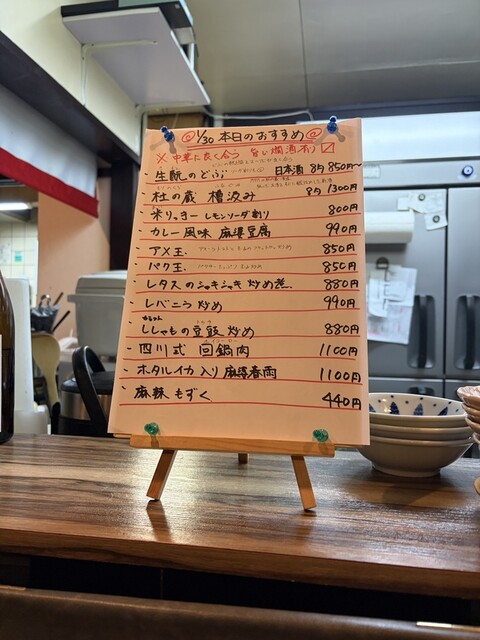 1/30 本日のおすすめ
※ 中華に良く合う 旨い燗酒有り
・生酛のどぶ 日本酒 8勺 850円〜
杜の蔵 槽汲み 8勺 1300円
・米りっきー レモンソーダ割り 800円
・カレー風味 麻婆豆腐 990円
・アメ玉. 850円
・パク玉. 850円
・レタスのシャキシャキ炒め煮. 880円
・レバニラ炒め 990円
・ししゃもの豆豉炒め 880円
・四川式 回鍋肉 1100円
・ホタルイカ入り麻婆春雨 1100円
・麻辣もずく 440円